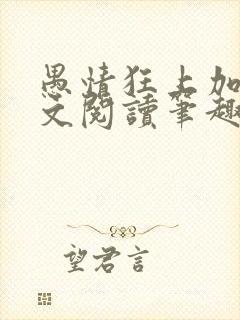 愚情狂上加
文閱讀筆趣
望君言